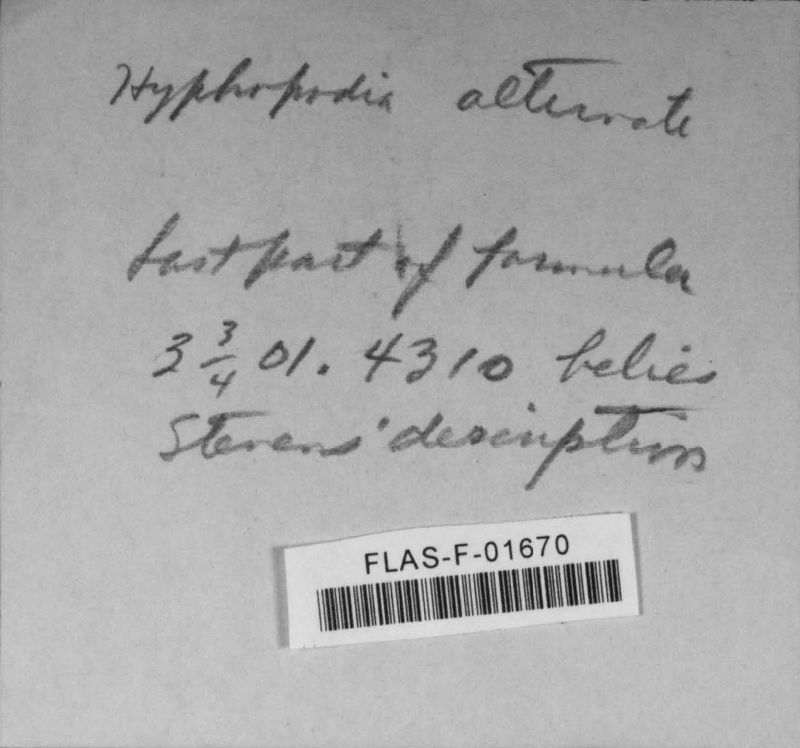 Hyphopodia alternate
Last part of formula
3 3/4 01. 4310 belies
Stevens' description
FLAS-F-01670